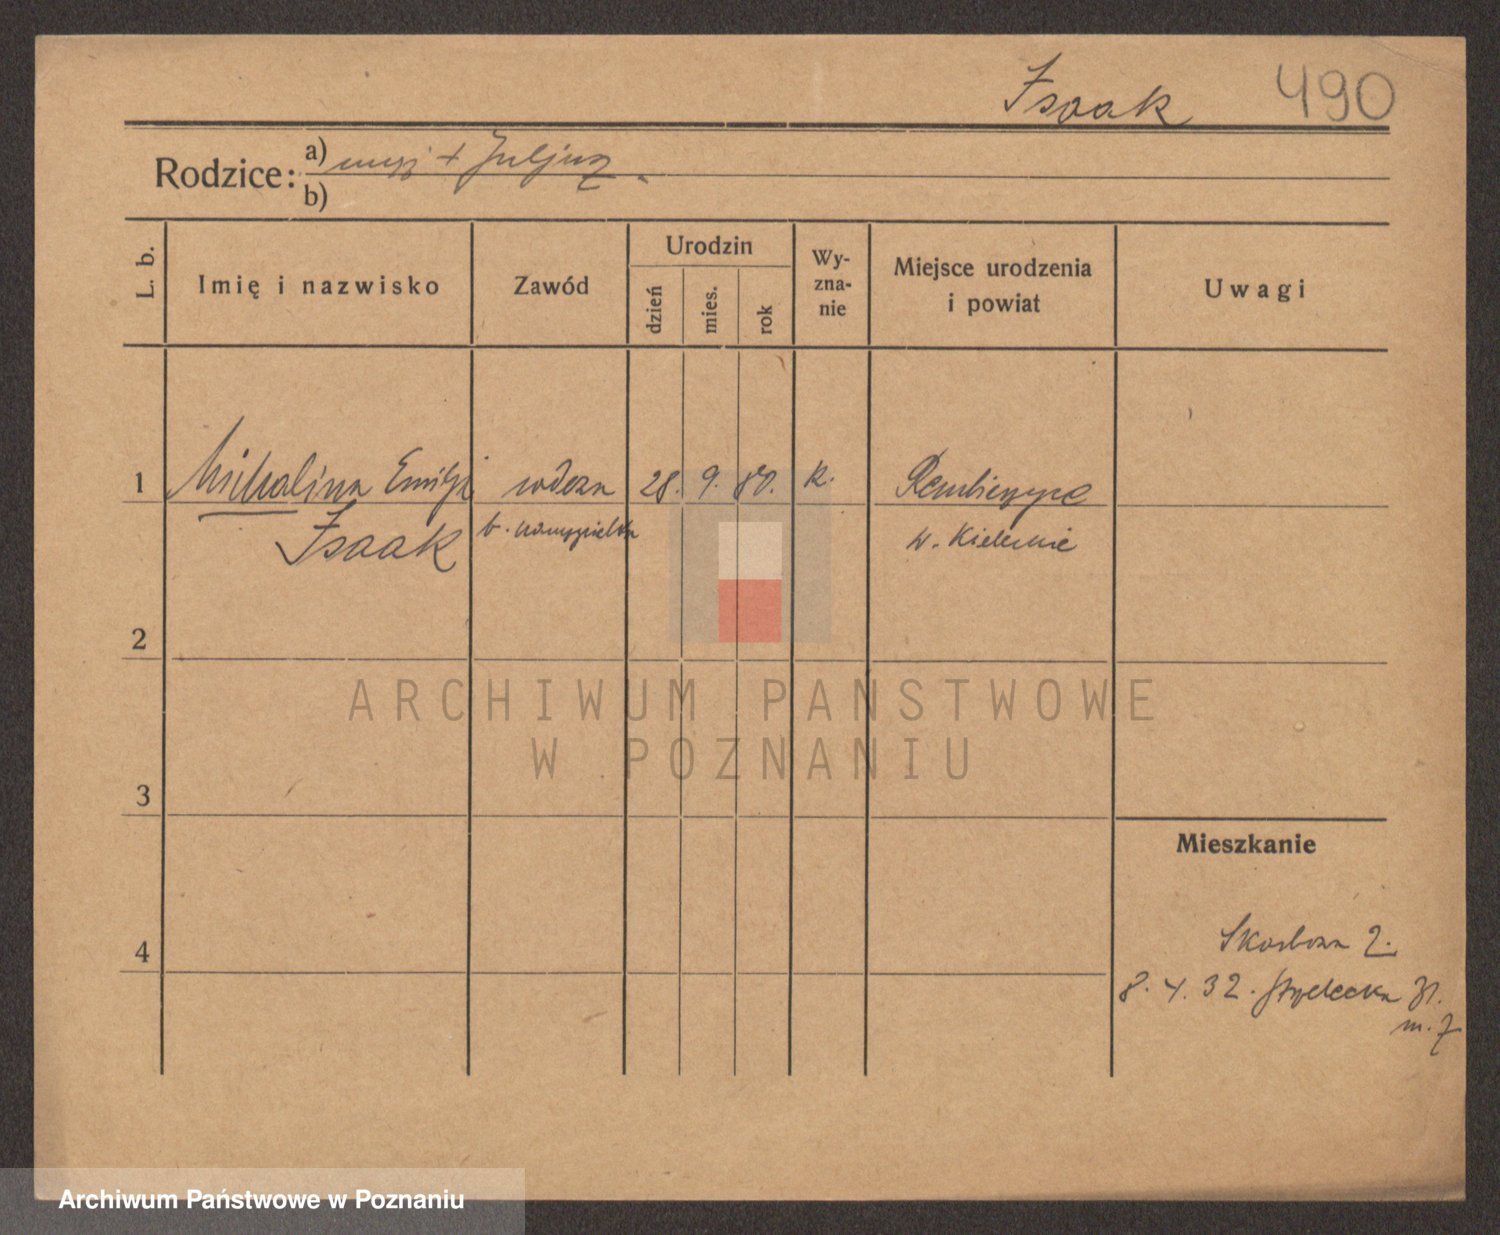 Isaak 490
Rodzice: a) mąż + Juljusz
b)
L. b.
Imię i nazwisko
Zawód
Urodzin
dzień
mies.
rok
Wy-
zna-
nie
Miejsce urodzenia
i powiat
Uwagi
1 Michalina Emilja wdowa 28. 9. 80. k.
Isaak b. w. Kielecki
2
3
4
ARCHIWUM PAŃSTWOWE
W POZNANIU
Mieszkanie
Skarbowa 2.
8. 4. 32. 31.
m. 7
Archiwum Państwowe w Poznaniu